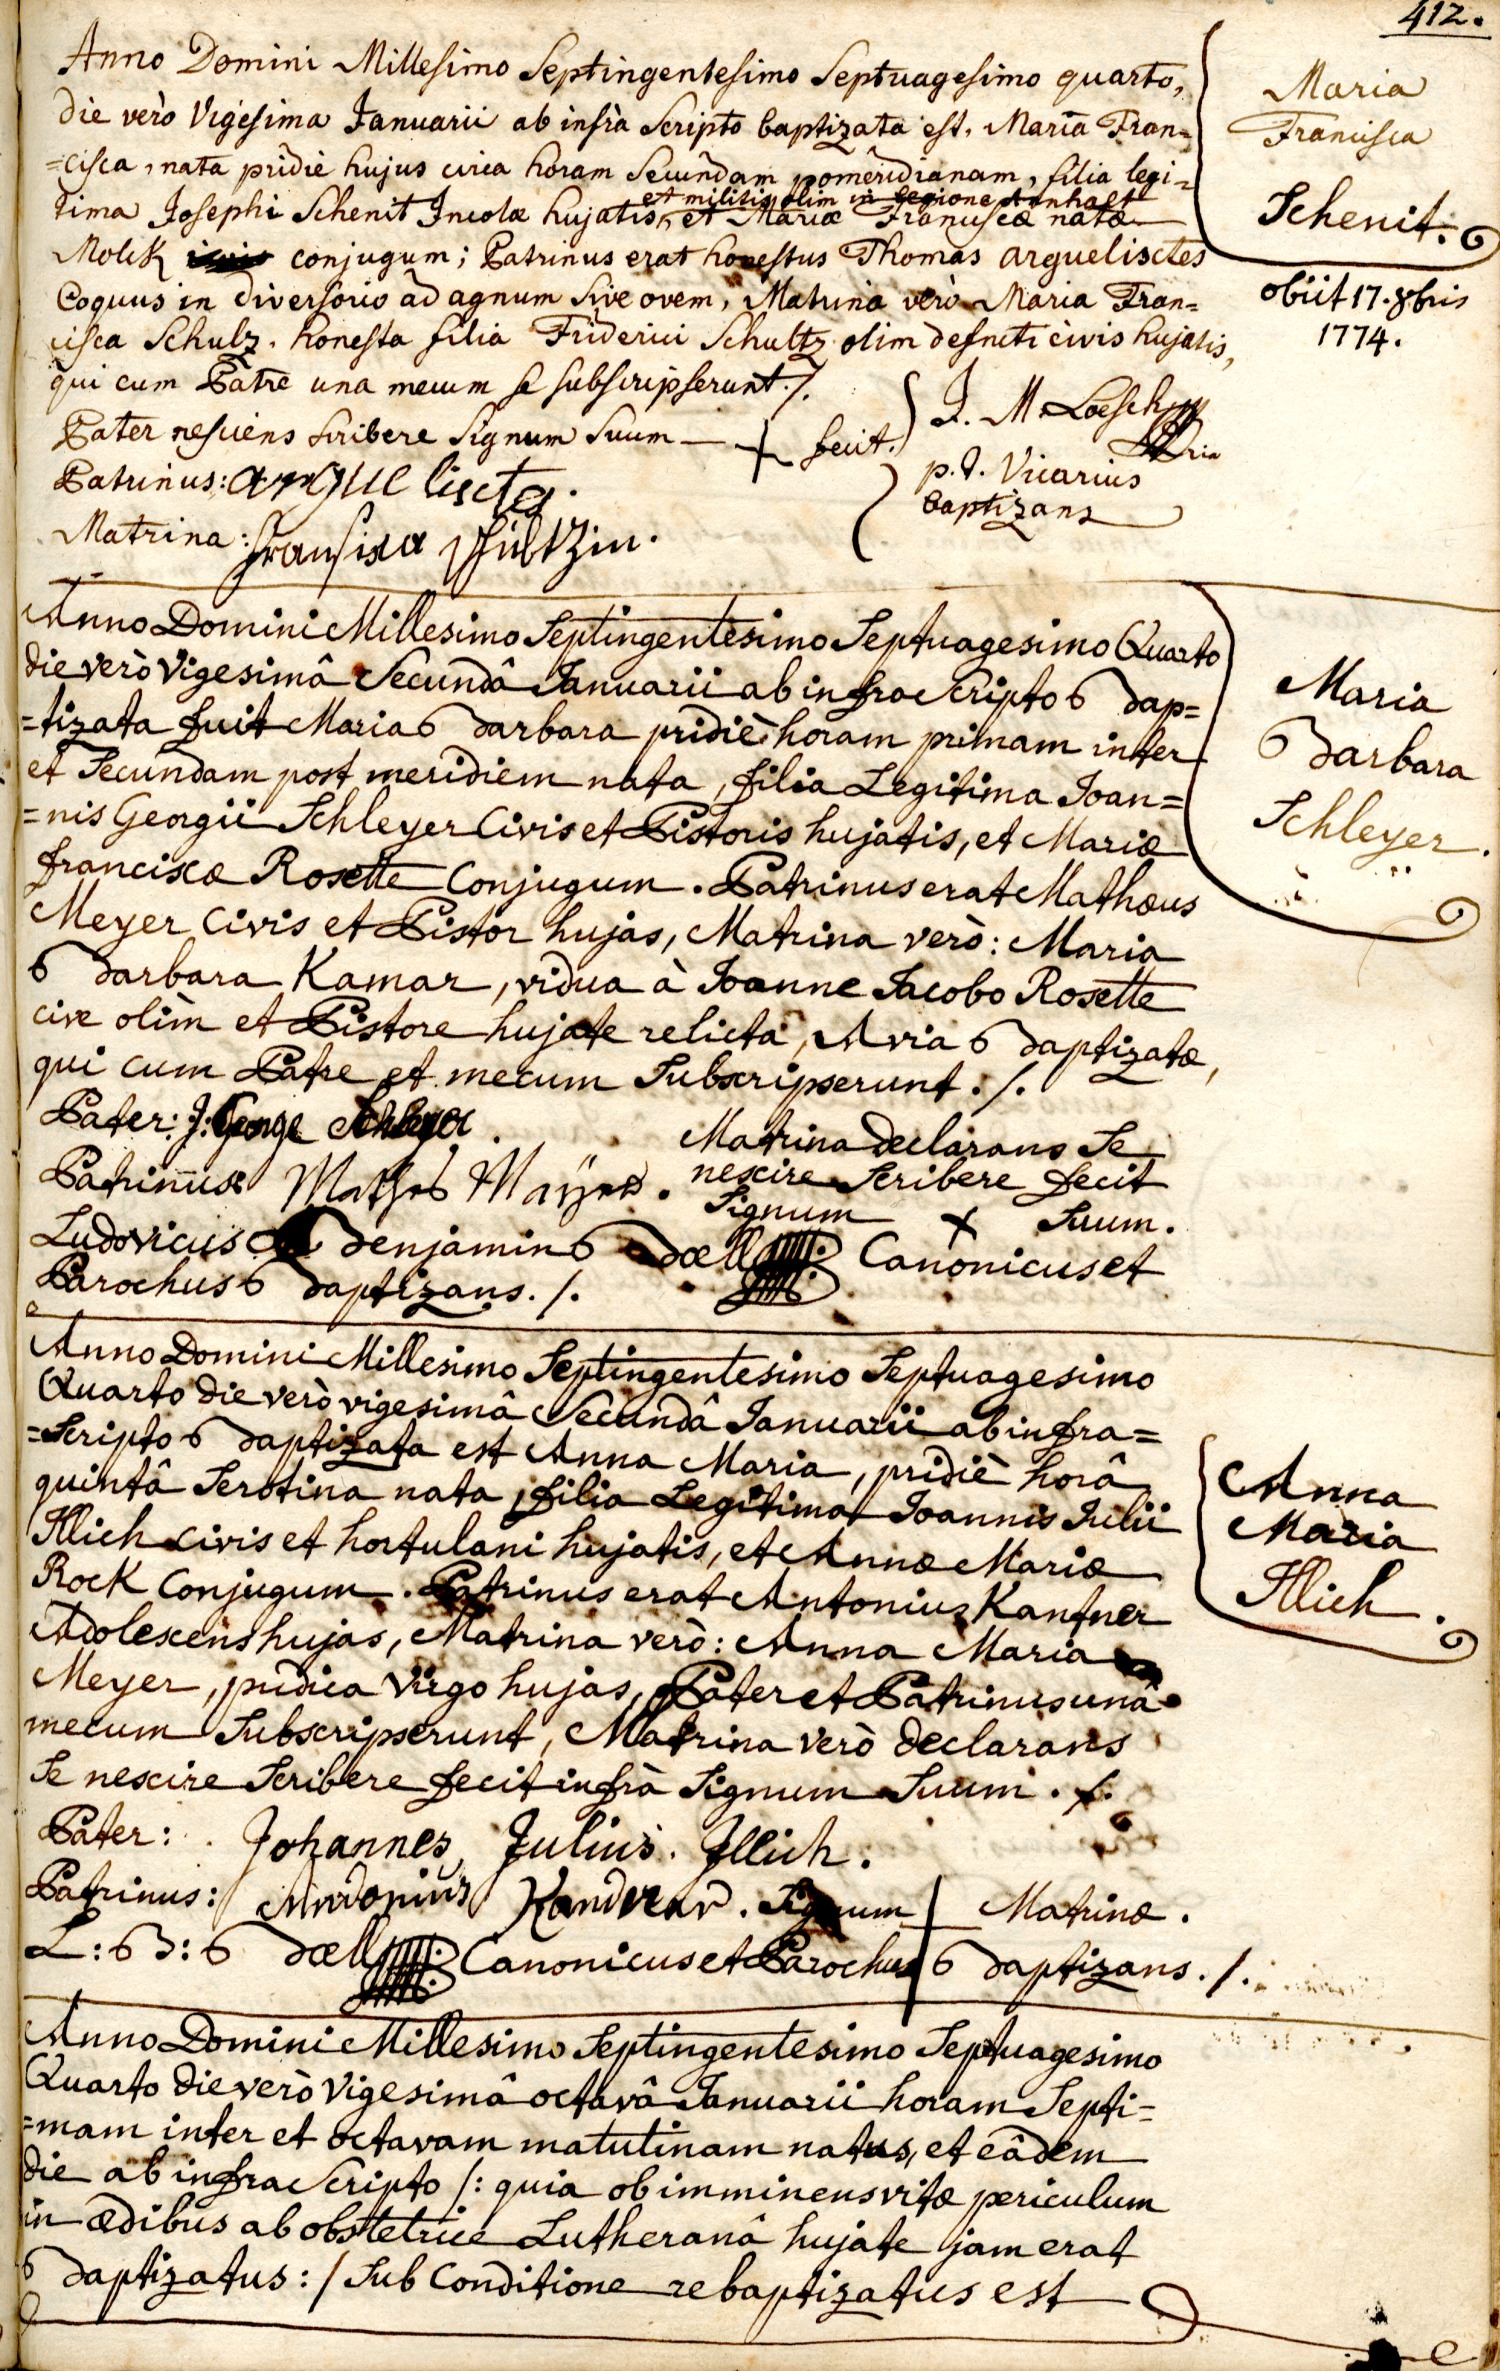 412.
Anno Domini Millesimo Septingentesimo Septuagesimo quarto,
die verò Vigesima Januarii ab infrà Scripto baptizata est, Maria Fran=
=cisca, nata pridie hujus circa horam Secundam pomeridianam, filia legi=
et militis olim in legione Anhalt
tima Josephi Schenit Incolæ hujatis, et Mariæ Franciscæ natæ
Molck conjugum; Patrinus erat honestus Thomas arguelisctes
Coquus in diversorio ad agnum sive ovem, Matrina verò Maria Fran=
cisca Schulz. honesta filia Friderici Schultz olim defncti civis hujatis,
qui cum Patre una mecum se subscripserunt./.
Pater nesciens scribere Signum Suum + fecit.
Patrinus: argue liscta.
Matrina: Fransisca Schültzin.
J. M. Loesch
p.t. Vicarius
baptizans
Maria
Francisca
Schenit.
obiit 17. 8bris
1774.
Anno Domini Millesimo Septingentesimo Septuagesimo Quarto
die verò Vigesimâ Secundâ Januarii ab infra Scripto Bap=
=tizata fuit Maria Barbara pridiè horam primam inter
et Secundam post meridiem nata, filia Legitima Joan=
=nis Georgii Schleyer Civis et Pistoris hujatis, et Mariæ
franciscæ Rosette Conjugum. Patrinus erat Mathæus
Meyer Civis et Pistor hujas, Matrina verò: Maria
Barbara Kamar, vidua à Joanne Jacobo Rosette
cive olìm et Pistore hujate relicta, Avia Baptizatæ,
qui cum Patre et mecum Subscripserunt./.
Pater: J: George Schleyer.
Patrinus: Mathes Mayer.
Matrina declarans Se
nescire Scribere fecit
Signum + Suum.
Ludovicus Benjamin Bœll Canonicus et
Parochus Baptizans./.
Maria
Barbara
Schleyer.
Anno Domini Millesimo Septingentesimo Septuagesimo
Quarto die verò vigesimâ Secundâ Januarii ab infra=
=Scripto Baptizata est Anna Maria, pridiè horâ
quintâ Serotina nata, filia Legitima Joannis Julii
Illich civis et hortulani hujatis, et Annæ Mariæ
Rock Conjugum. Patrinus erat Antonius Kantner
Adolescens hujas, Matrina verò: Anna Maria
Meyer, pudica Virgo hujas, Pater et Patrinus unâ
mecum Subscripserunt, Matrina verò declarans
Se nescire Scribere fecit infrà Signum Suum./.
Pater: Johannes Julius Illich.
Patrinus: Signum + Matrinæ.
L: B: Bœll Canonicus et Parochus Baptizans./.
Anna
Maria
Illich.
Anno Domini Millesimo Septingentesimo Septuagesimo
Quarto die verò Vigesimâ octavâ Januarii horam Septi=
=mam inter et octavam matutinam natus, et eâdem
die ab infra Scripto /: quia ob imminens vitæ periculum
in ædibus ab obstetrice Lutheranâ hujate jam erat
Baptizatus:/ Sub Conditione rebaptizatus est